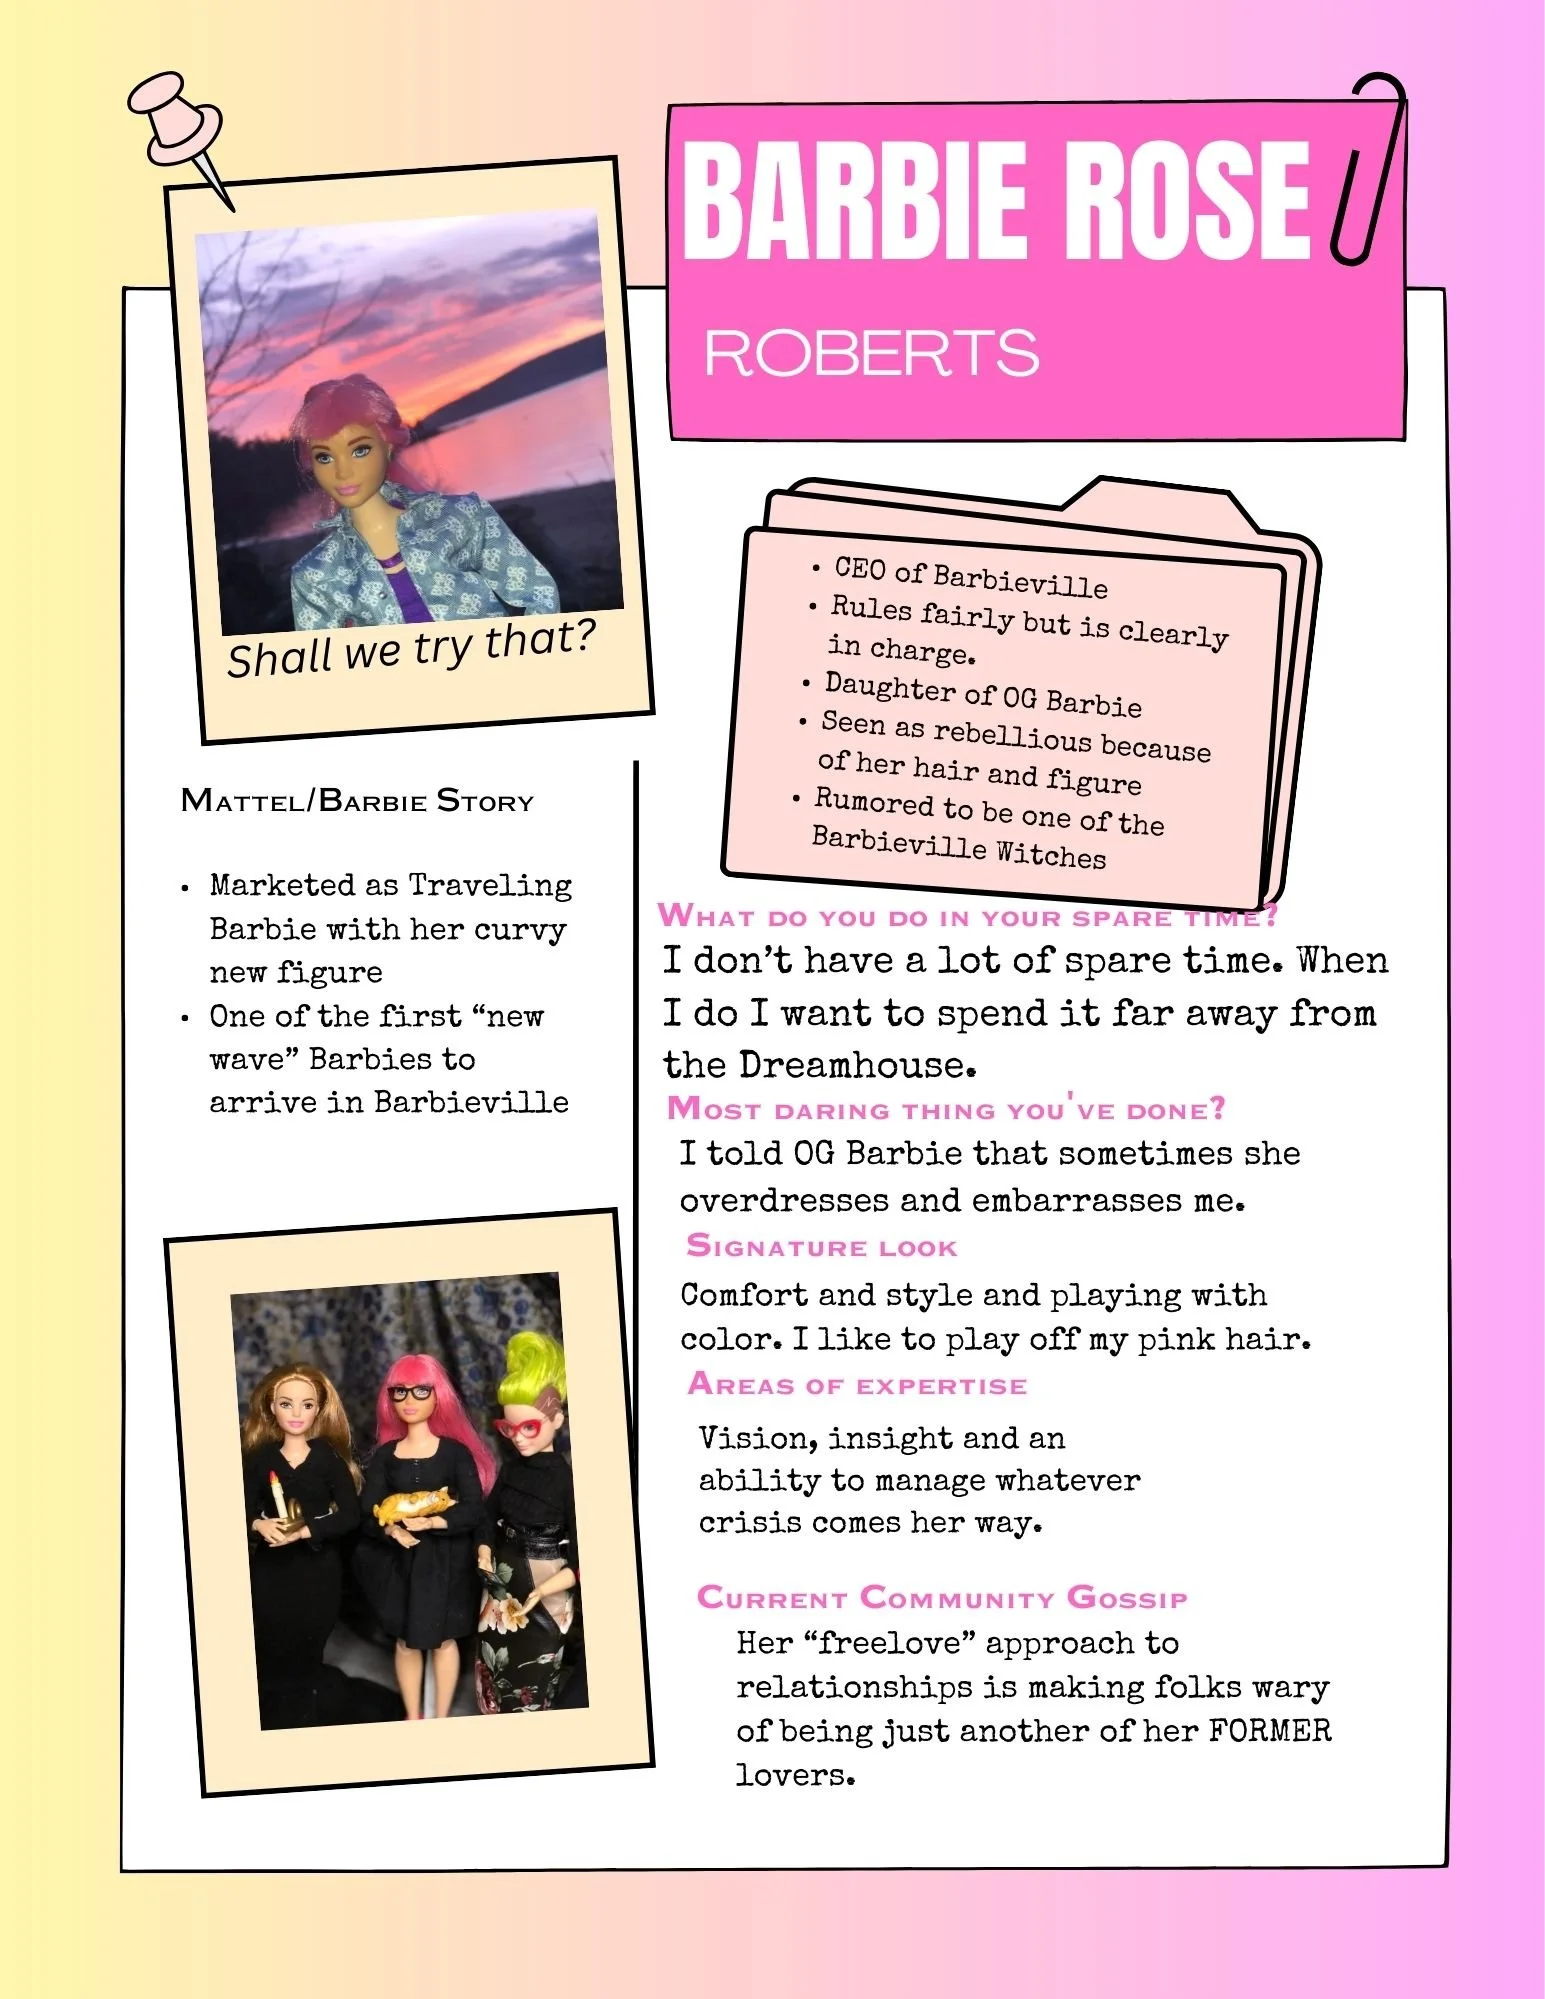 BARBIE ROSE
ROBERTS
Shall we try that?
• CEO of Barbieville
• Rules fairly but is clearly
in charge.
• Daughter of OG Barbie
• Seen as rebellious because
of her hair and figure
• Rumored to be one of the
Barbieville Witches
Mattel/Barbie Story
• Marketed as Traveling
Barbie with her curvy
new figure
• One of the first “new
wave” Barbies to
arrive in Barbieville
What do you do in your spare time?
I don’t have a lot of spare time. When
I do I want to spend it far away from
the Dreamhouse.
Most daring thing you've done?
I told OG Barbie that sometimes she
overdresses and embarrasses me.
Signature look
Comfort and style and playing with
color. I like to play off my pink hair.
Areas of expertise
Vision, insight and an
ability to manage whatever
crisis comes her way.
Current Community Gossip
Her “freelove” approach to
relationships is making folks wary
of being just another of her FORMER
lovers.